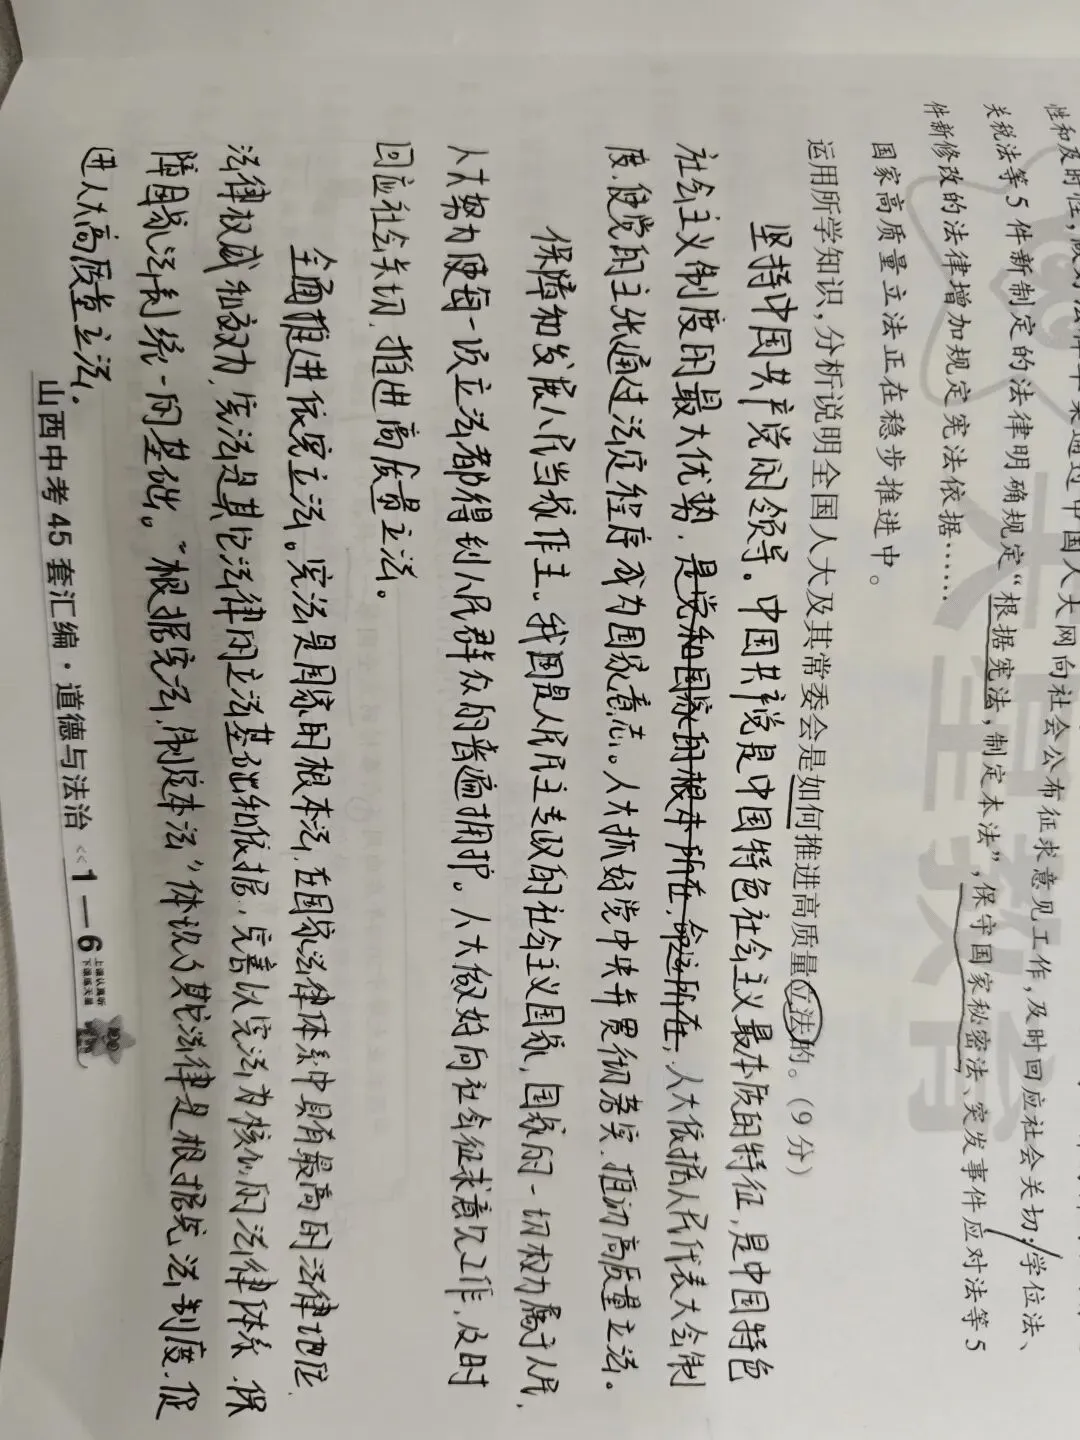 性和及时性,
中国人大网向社会公布征求意见工作,及时回应社会关切;学位法、
关税法等5件新制定的法律明确规定“根据宪法,制定本法”,保守国家秘密法、突发事件应对法等5
件新修改的法律增加规定宪法依据……
国家高质量立法正在稳步推进中。
运用所学知识,分析说明全国人大及其常委会是如何推进高质量立法的。(9分)
坚持中国共产党的领导。中国共产党是中国特色社会主义最本质的特征,是中国特色
社会主义制度的最大优势,是党和国家的根本所在,命运所在,人大依据人民代表大会制
度,使党的主张通过法定程序成为国家意志。人大抓好党中央并贯彻落实,推动高质量立法。
保障和发展人民当家作主。我国是人民民主专政的社会主义国家,国家的一切权力属于人民,
人大努力使每一项立法都得到人民群众的普遍拥护。人大做好向社会征求意见工作,及时
回应社会关切,推进高质量立法。
全面推进依宪立法。宪法是国家的根本法,在国家法律体系中具有最高的法律地位、
法律权威和效力,宪法是其它法律的立法基础和依据,完善以宪法为核心的法律体系,保
障国家法制统一的基础。“根据宪法,制定本法”体现了其它法律是根据宪法制度,促
进人大高质量立法。
山西中考45套汇编·道德与法治 «1—6
大星教育